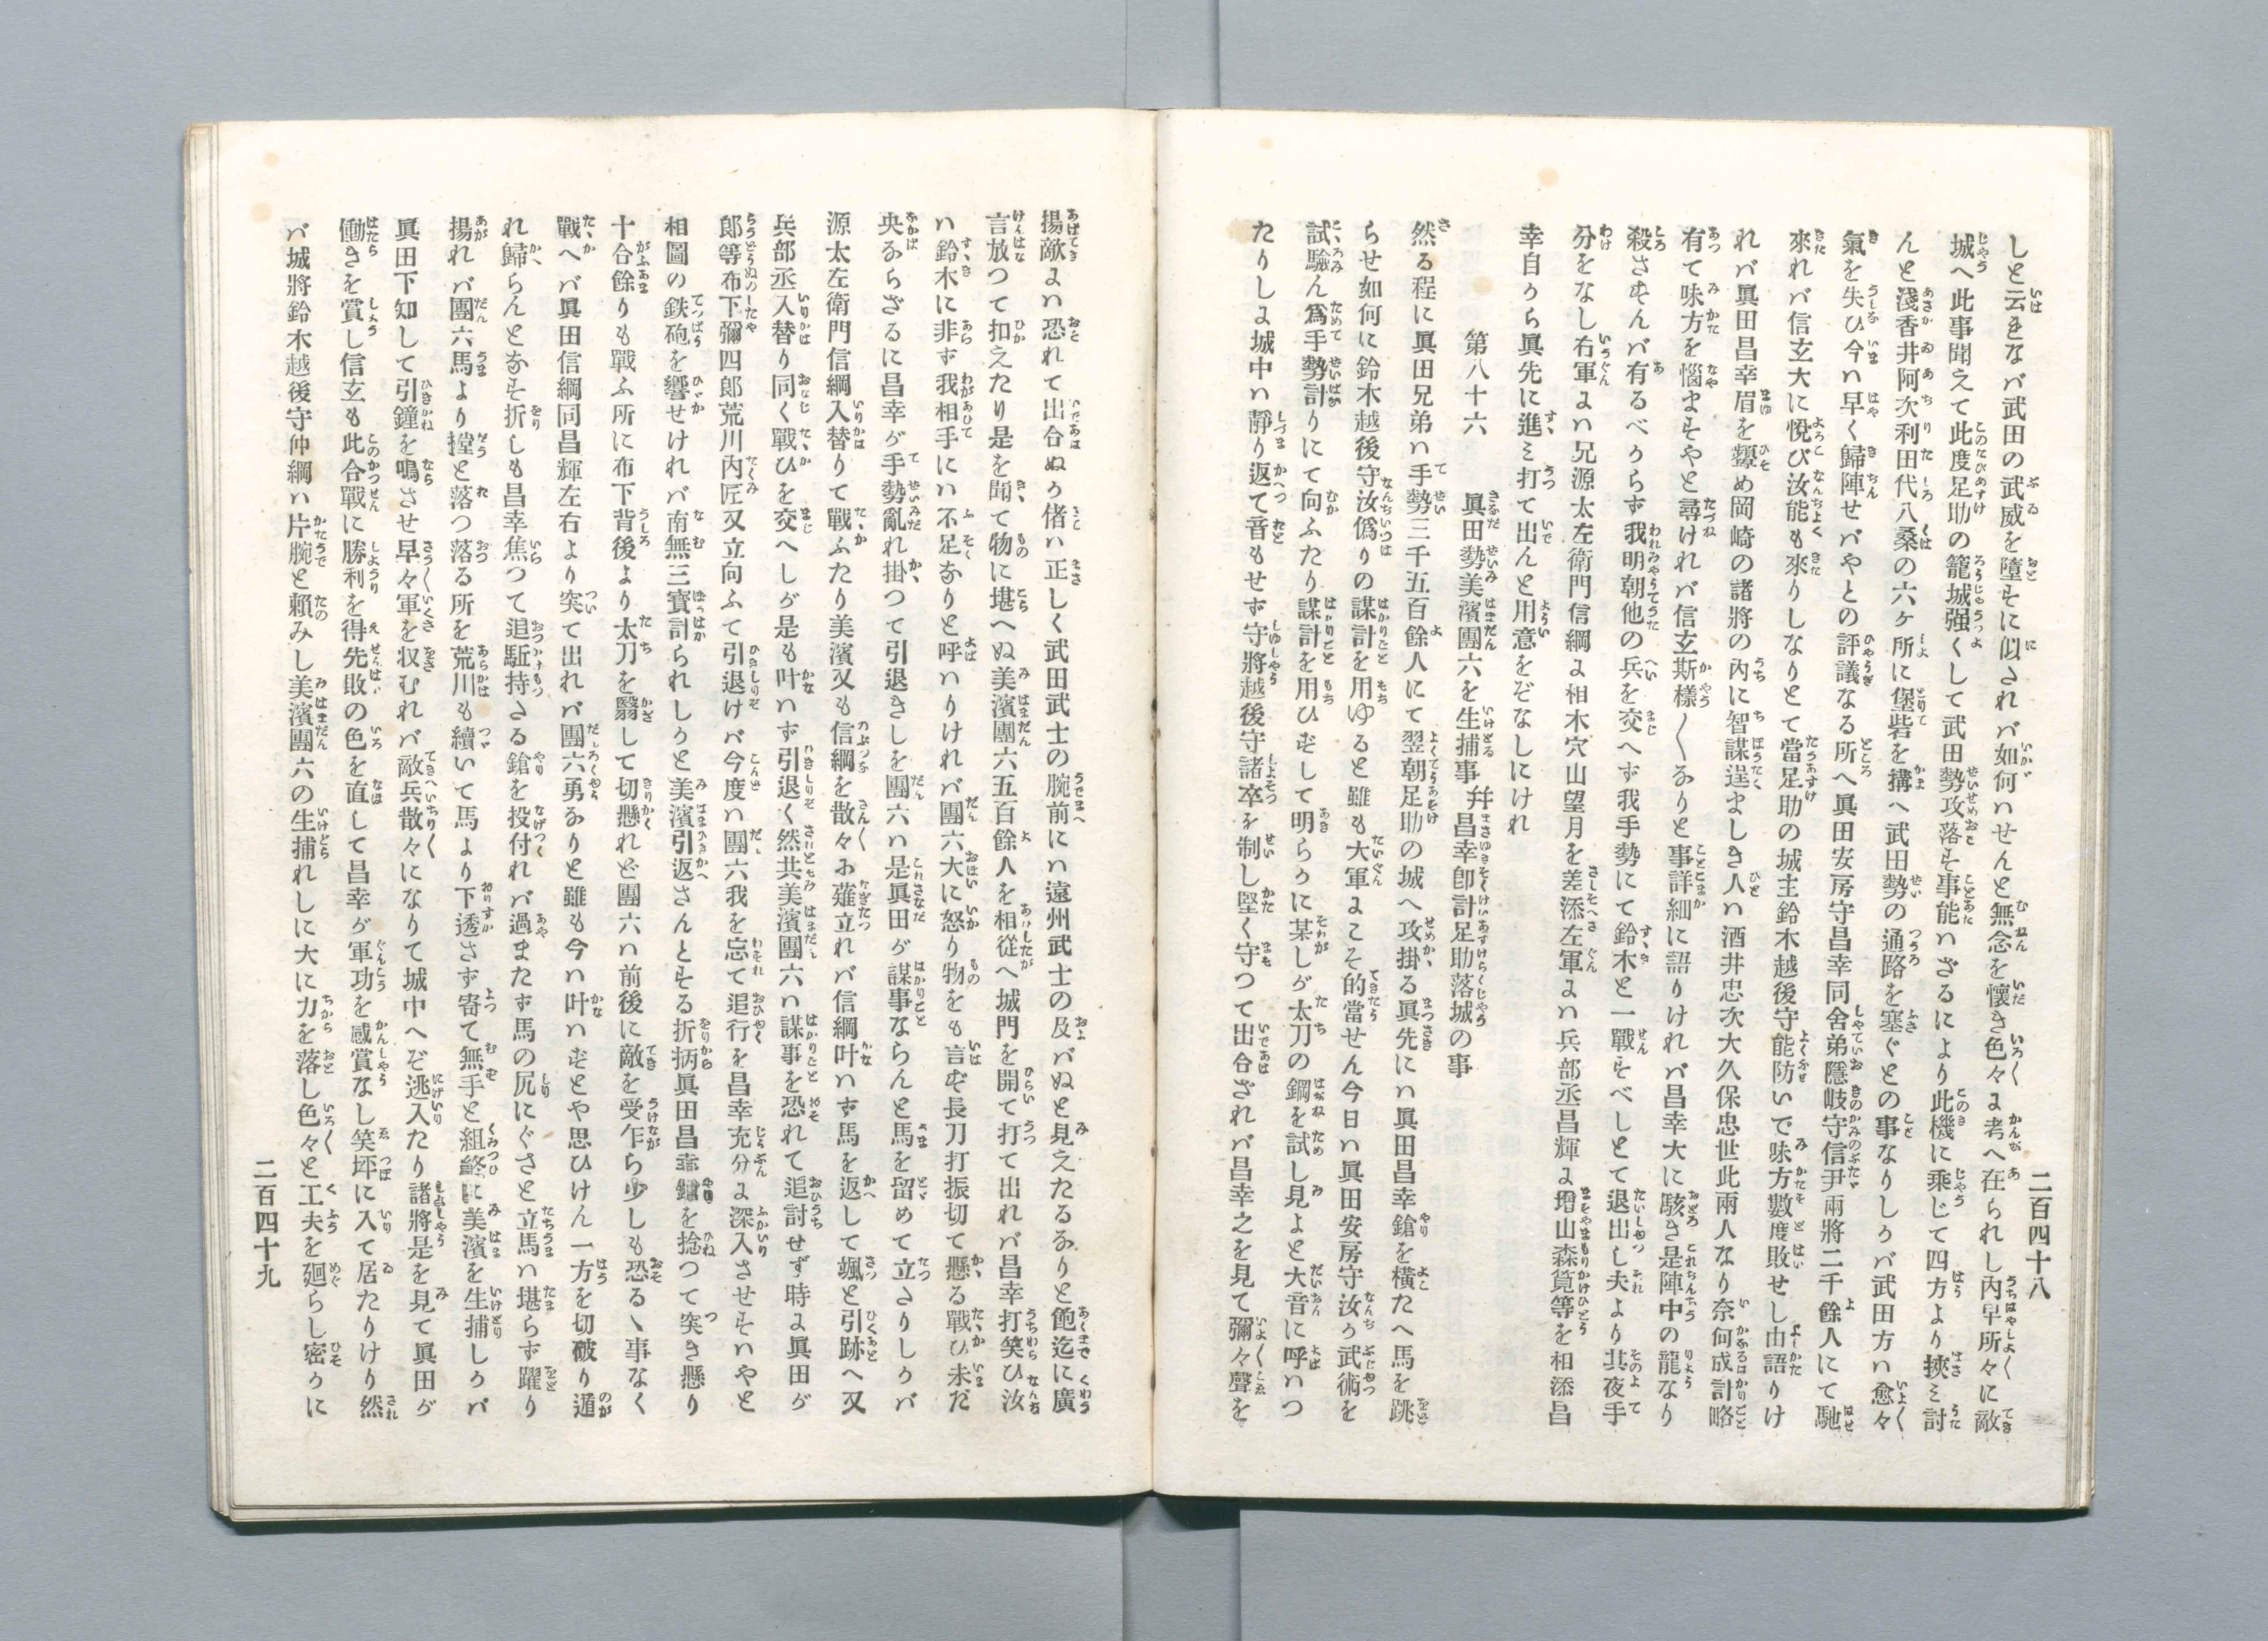 二百四十八
しと云をなバ武田の武威を墮をに似されバ如何ハせんと無念を懷き色々に考へ在られし內早所々に敵
城へ此事聞えて此度足助の籠城强くして武田勢攻落を事能ハざるにより此機に乘じて四方より挾ミ討
んと淺香井阿次利田代八桑の六ヶ所に堡砦を搆へ武田勢の通路を塞ぐとの事なりしかバ武田方ハ愈々
氣を失ひ今ハ早く歸陣せバやとの評議なる所へ眞田安房守昌幸同舍弟隱岐守信尹兩將二千餘人にて馳
來れバ信玄大に悅び汝能も來りしなりとて當足助の城主鈴木越後守能防いで味方數度敗せし由語りけ
れバ眞田昌幸眉を顰め岡崎の諸將の內に智謀逞ましき人ハ酒井忠次大久保忠世此兩人なり奈何成計略
有て味方を惱ませやと尋けれバ信玄斯樣〱なりと事詳細に語りけれバ昌幸大に駭き是陣中の龍なり
殺さずんバ有るべからず我明朝他の兵を交へず我手勢にて鈴木と一戰をべしとて退出し夫より其夜手
分をなし右軍にハ兄源太左衛門信綱に相木穴山望月を差添左軍にハ兵部丞昌輝に增山森筧等を相添昌
幸自から眞先に進ミ打て出んと用意をぞなしにけれ
第八十六　眞田勢美濱團六を生捕事幷昌幸卽計足助落城の事
然る程に眞田兄弟ハ手勢三千五百餘人にて翌朝足助の城へ攻掛る眞先にハ眞田昌幸鎗を橫たへ馬を跳
らせ如何に鈴木越後守汝僞りの謀計を用ゆると雖も大軍にこそ的當せん今日ハ眞田安房守汝か武術を
試驗ん爲手勢計りにて向ふたり謀計を用ひずして明らかに某しが太刀の鋼を試し見よと大音に呼ハつ
たりしに城中ハ靜り返て音もせず守將越後守諸卒を制し堅く守つて出合されバ昌幸之を見て彌々聲を
揚敵にハ恐れて出合ぬか偖ハ正しく武田武士の腕前にハ遠州武士の及バぬと見えたるなりと飽迄に廣
言放つて扣えたり是を聞て物に堪へぬ美濱團六五百餘人を相從へ城門を開て打て出れバ昌幸打笑ひ汝
ハ鈴木に非ず我相手にハ不足なりと呼ハりけれバ團六大に怒り物をも言ず長刀打振切て懸る戰ひ未だ
央ならざるに昌幸が手勢亂れ掛つて引退きしを團六ハ是眞田が謀事ならんと馬を留めて立さりしかバ
源太左衛門信綱入替りて戰ふたり美濱又も信綱を散々に薙立れバ信綱叶ハず馬を返して颯と引跡へ又
兵部丞入替り同く戰ひを交へしが是も叶ハず引退く然共美濱團六ハ謀事を恐れて追討せず時に眞田が
郎等布下彌四郎荒川內匠又立向ふて引退けバ今度ハ團六我を忘て追行を昌幸充分に深入させをハやと
相圖の鉄砲を響せけれバ南無三寶計られしかと美濱引返さんとをる折柄眞田昌幸鎗を捻つて突き懸り
十合餘りも戰ふ所に布下背後より太刀を翳して切懸れど團六ハ前後に敵を受乍ら少しも恐るヽ事なく
戰へバ眞田信綱同昌輝左右より突て出れバ團六勇なりと雖も今ハ叶ハずとや思ひけん一方を切破り遁
れ歸らんとなを折しも昌幸焦つて追駈持さる鎗を投付れバ過またず馬の尻にぐさと立馬ハ堪らず躍り
揚れバ團六馬より撞と落つ落る所を荒川も續いて馬より下透さず寄て無手と組終に美濱を生捕しかバ
眞田下知して引鐘を鳴させ早々軍を収むれバ敵兵散々になりて城中へぞ逃入たり諸將是を見て眞田が
働きを賞し信玄も此合戰に勝利を得先敗の色を直して昌幸が軍功を感賞なし笑坪に入て居たりけり然
バ城將鈴木越後守仲綱ハ片腕と賴みし美濱團六の生捕れしに大に力を落し色々と工夫を廻らし密かに
二百四十九